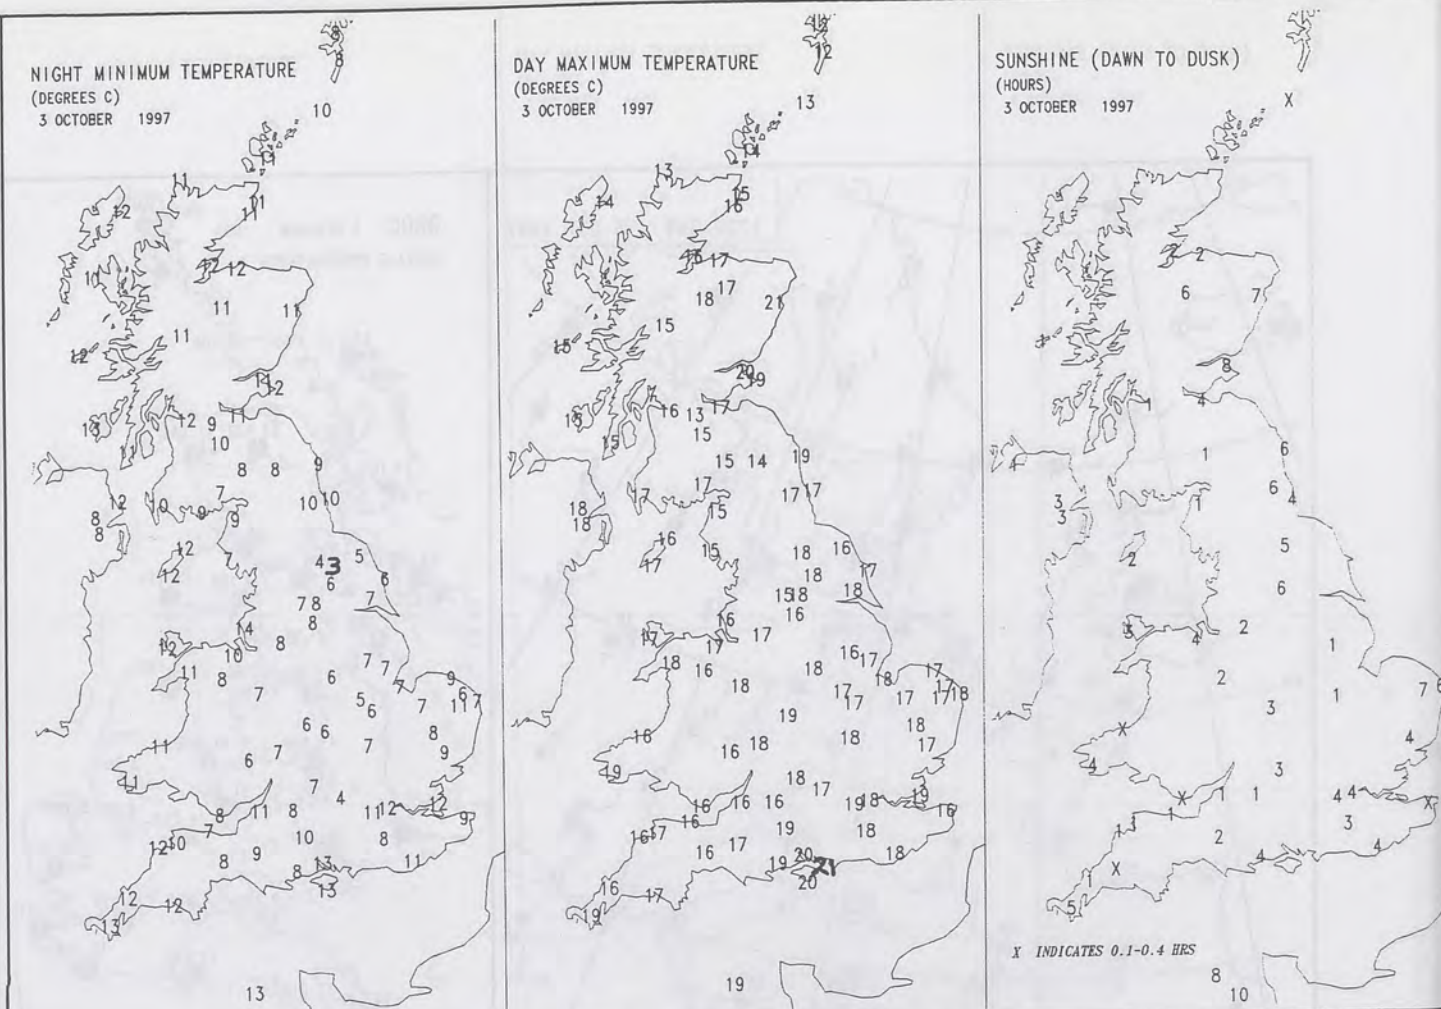 NIGHT MINIMUM TEMPERATURE
(DEGREES C)
3 OCTOBER 1997
8
10
11
11
12
11
11
12
10
12
11
11
11
12
12
7
12
9
11
10
11
8
8
9
7
10
10
12
10
9
9
8
8
12
7
4
3
5
12
6
6
7
8
7
14
8
12
10
8
11
8
7
6
7
7
7
9
6
7
5
6
7
11
6
6
8
11
7
7
9
6
11
7
4
8
11
8
11
12
12
9
7
12
10
10
8
8
9
8
13
11
13
12
12
13
13
DAY MAXIMUM TEMPERATURE
(DEGREES C)
3 OCTOBER 1997
12
12
13
14
13
15
14
17
17
18
21
15
15
20
19
16
13
17
15
15
15
14
19
17
17
17
17
18
18
15
16
15
17
18
16
17
18
15
18
18
16
16
17
17
17
18
16
18
16
17
18
17
18
17
17
17
17
18
19
18
16
18
16
18
17
19
18
17
16
16
16
19
18
19
16
16
16
17
19
18
16
17
20
18
19
21
20
16
17
19
19
SUNSHINE (DAWN TO DUSK)
(HOURS)
3 OCTOBER 1997
X
2
2
6
7
8
1
4
1
6
4
6
4
3
3
1
2
5
6
3
4
2
1
2
3
1
7
X
4
4
3
X
1
1
4
4
X
1
1
2
3
4
4
X
1
5
X INDICATES 0.1-0.4 HRS
8
10